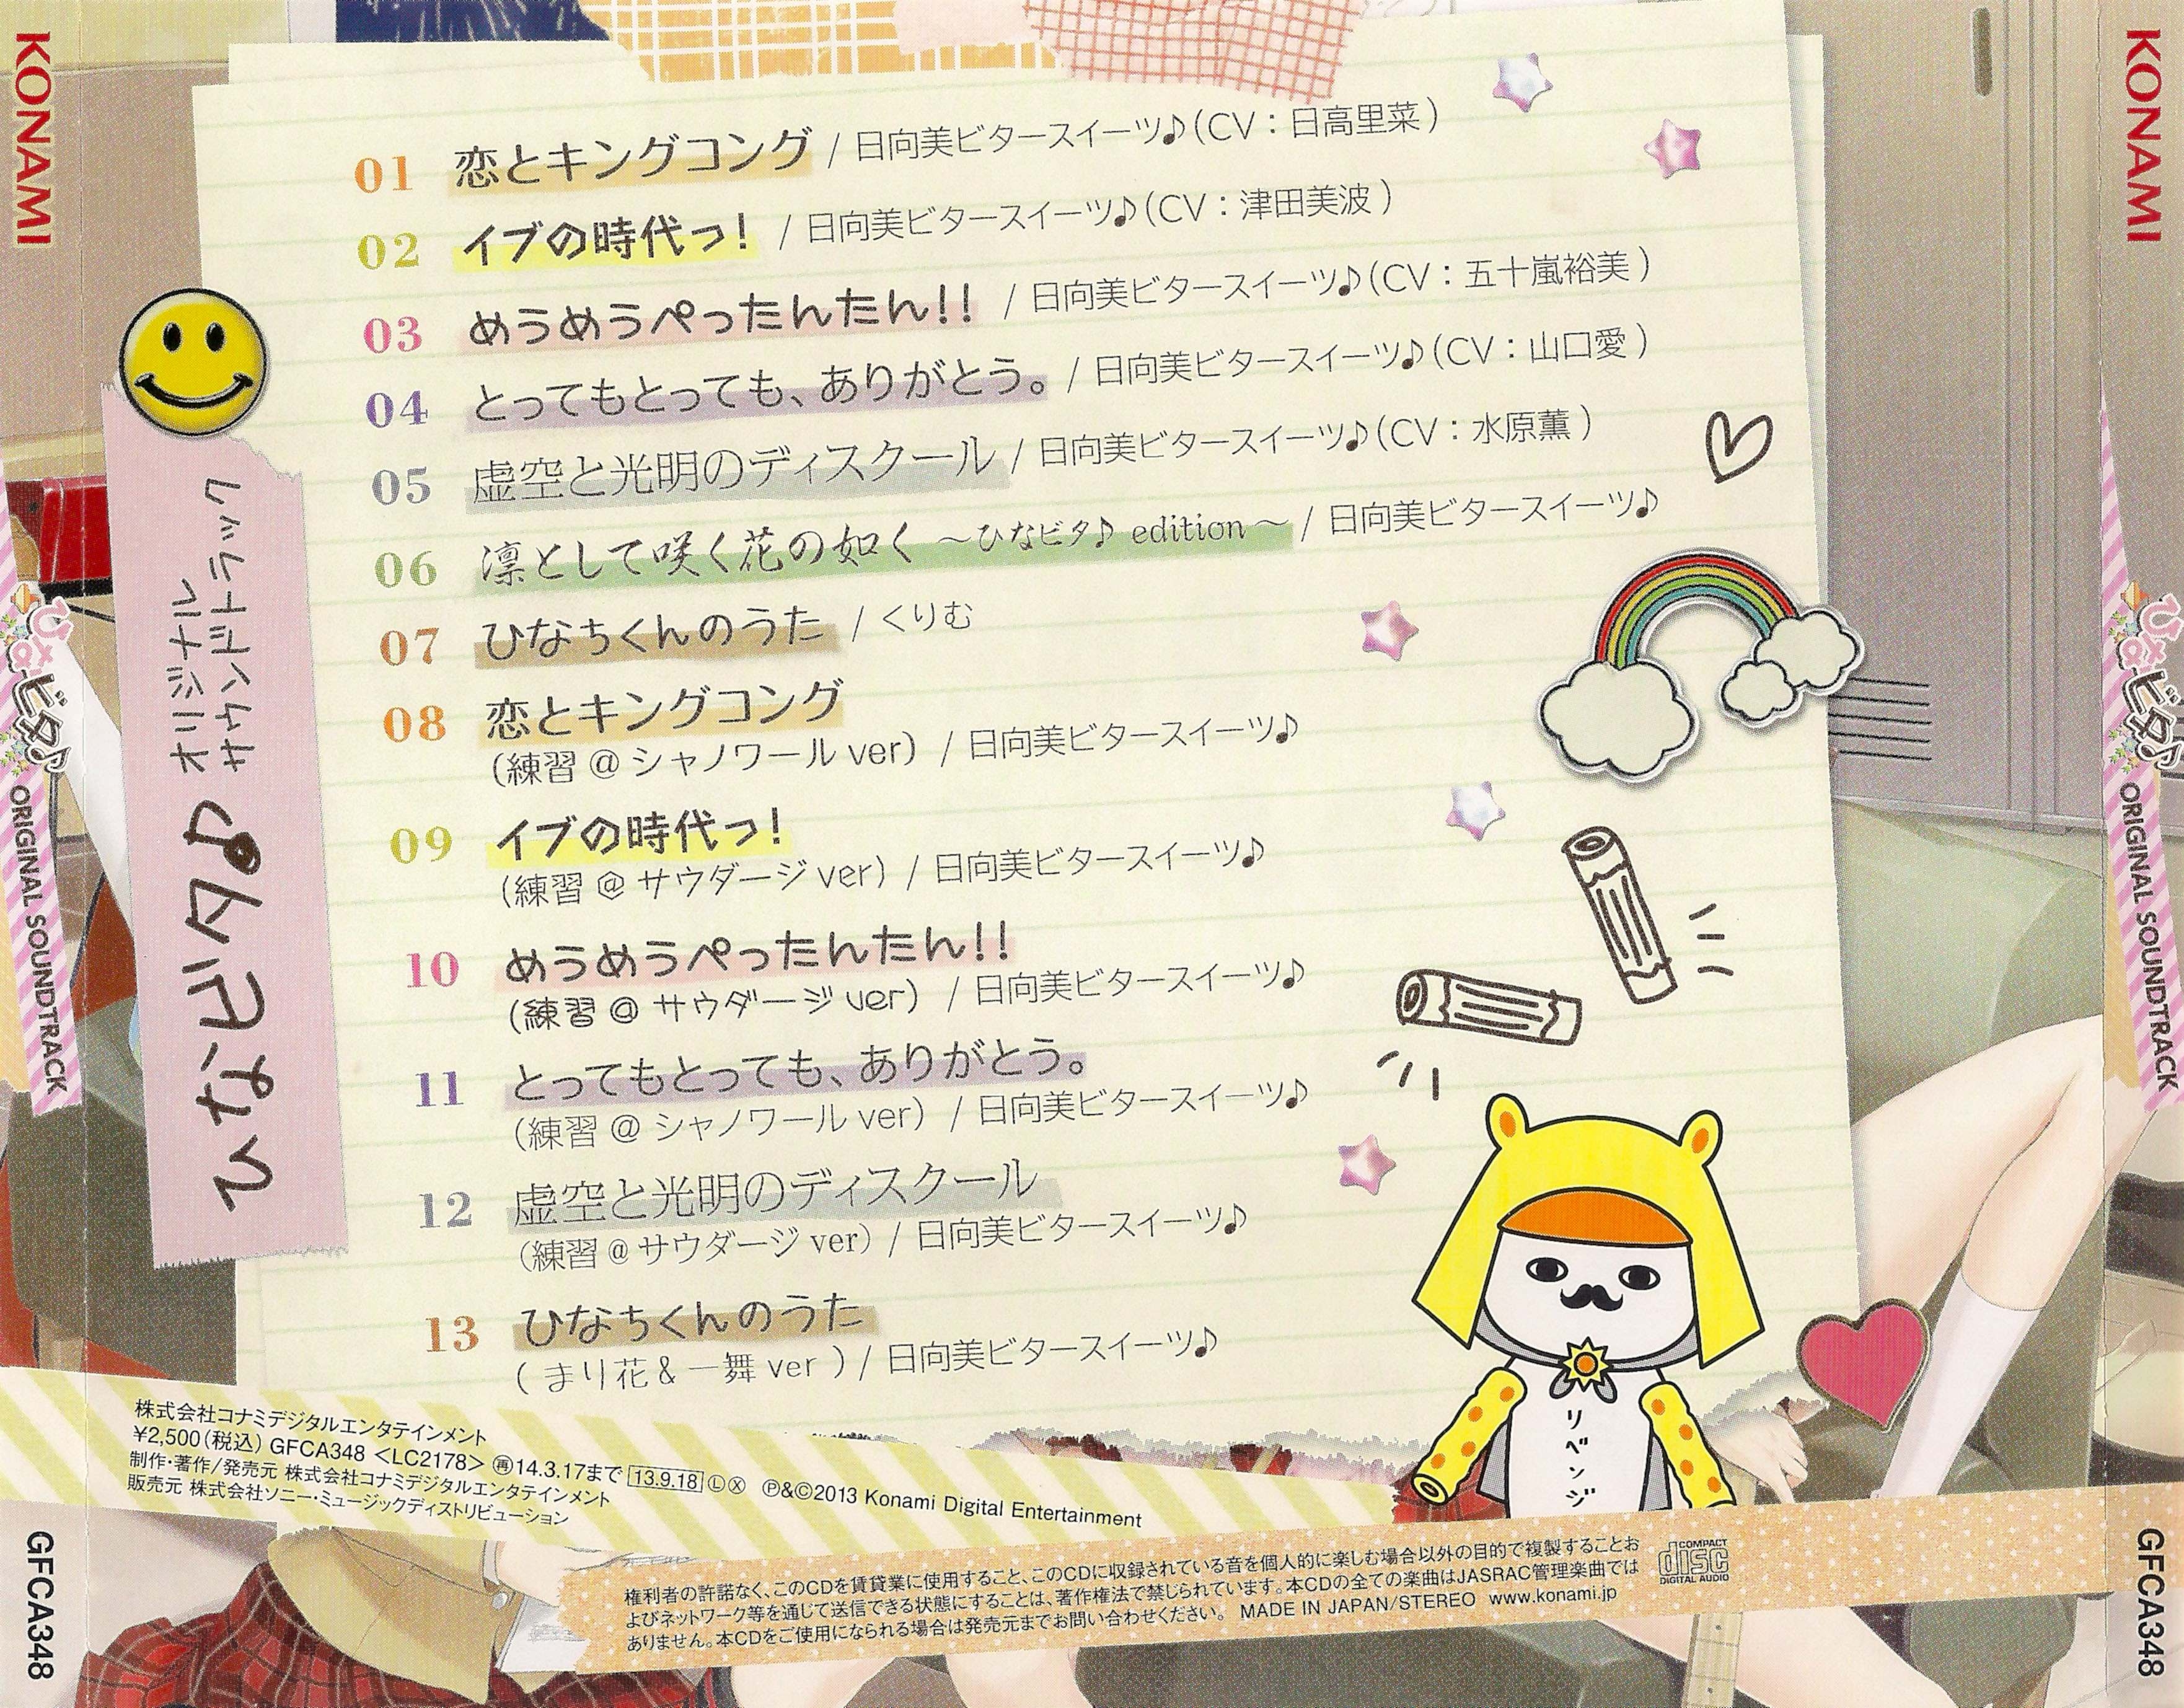 KONAMI
ひなビタ♪
ORIGINAL SOUNDTRACK
GFCA348
ひなビタ♪
オリジナル
サウンドトラック
01 恋とキングコング / 日向美ビタースイーツ♪(CV：日高里菜)
02 イブの時代っ! / 日向美ビタースイーツ♪(CV：津田美波)
03 めうめうぺったんたん!! / 日向美ビタースイーツ♪(CV：五十嵐裕美)
04 とってもとっても、ありがとう。 / 日向美ビタースイーツ♪(CV：山口愛)
05 虚空と光明のディスクール / 日向美ビタースイーツ♪(CV：水原薫)
06 凛として咲く花の如く ～ひなビタ♪ edition～ / 日向美ビタースイーツ♪
07 ひなちくんのうた / くりむ
08 恋とキングコング
(練習 @ シャノワール ver) / 日向美ビタースイーツ♪
09 イブの時代っ!
(練習 @ サウダージ ver) / 日向美ビタースイーツ♪
10 めうめうぺったんたん!!
(練習 @ サウダージ ver) / 日向美ビタースイーツ♪
11 とってもとっても、ありがとう。
(練習 @ シャノワール ver) / 日向美ビタースイーツ♪
12 虚空と光明のディスクール
(練習 @ サウダージ ver) / 日向美ビタースイーツ♪
13 ひなちくんのうた
( まり花 & 一舞 ver ) / 日向美ビタースイーツ♪
リベンジ
株式会社コナミデジタルエンタテインメント
¥2,500(税込) GFCA348 <LC2178> 再14.3.17まで 13.9.18 Ⓛ Ⓧ ℗&©2013 Konami Digital Entertainment
制作・著作/発売元 株式会社コナミデジタルエンタテインメント
販売元 株式会社ソニー・ミュージックディストリビューション
権利者の許諾なく、このCDを賃貸業に使用すること、このCDに収録されている音を個人的に楽しむ場合以外の目的で複製することお
よびネットワーク等を通じて送信できる状態にすることは、著作権法で禁じられています。本CDの全ての楽曲はJASRAC管理楽曲では
ありません。本CDをご使用になられる場合は発売元までお問い合わせください。 MADE IN JAPAN/STEREO www.konami.jp
COMPACT
disc
DIGITAL AUDIO
KONAMI
ひなビタ♪
ORIGINAL SOUNDTRACK
GFCA348